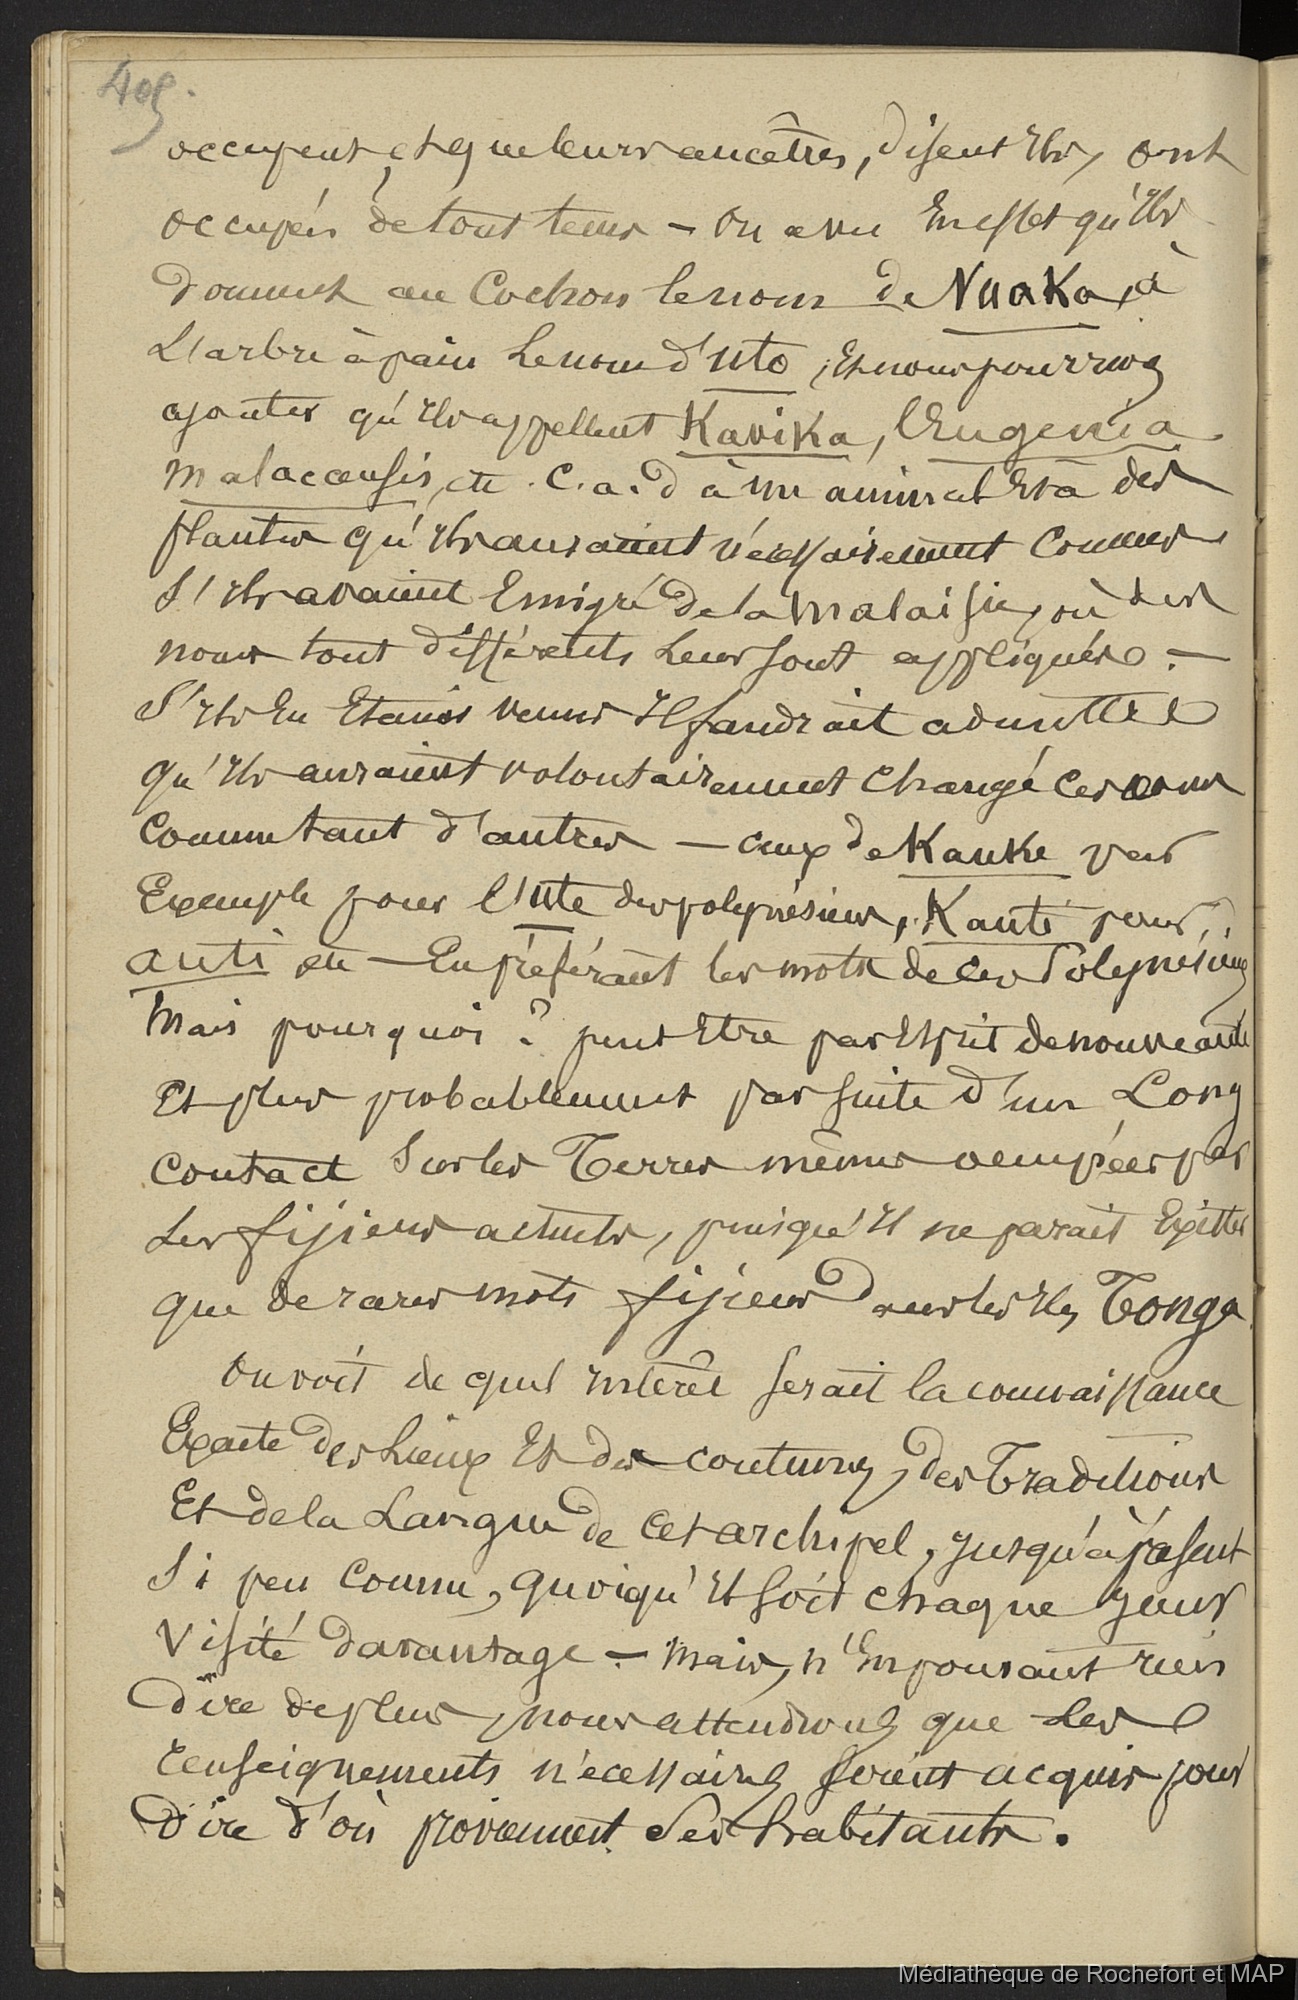 409.
occupent et que leurs ancêtres, disent ils, ont
occupés de tout tems - On a vu En effet qu'ils
donnent au Cochon le nom de Nuaka, à
L'arbre à pain Le nom d'uto, Et nous pourrions
ajouter qu'ils appellent Kavika, l'Eugenia
malaccensis, etc. C.a.d à un animal Et à des
plantes qu'ils auraient nécessairement connus
S'ils avaient Emigré de la Malaisie, où des
noms tout différents Leur sont appliqués. -
S'ils En Etaient venus Il faudrait admettre
qu'ils auraient volontairement changé ces noms
comme tant d'autres - ceux de Kauke par
Exemple pour l'ute des polynésiens, Kauti pour
auti etc - En préférant les mots de ces Polynésiens
Mais pourquoi ? peut Etre par Esprit de nouveauté
Et plus probablement par suite d'un Long
contact Sur les Terres mêmes occupées par
Les fijiens actuels, puisqu'Il ne parait Exister
que de rares mots fijiens dans les Iles Tonga
On voit de quel intérêt serait la connaissance
Exacte des Lieux Et des coutumes, des Traditions
Et de la Langue de cet archipel, jusqu'à présent
Si peu connu, quoiqu'Il soit chaque jour
Visité davantage - Mais, n'En pouvant rien
dire de plus, nous attendrons que Les
renseignements nécessaires soient acquis pour
dire d'où proviennent Ses habitants.
Médiathèque de Rochefort et MAP